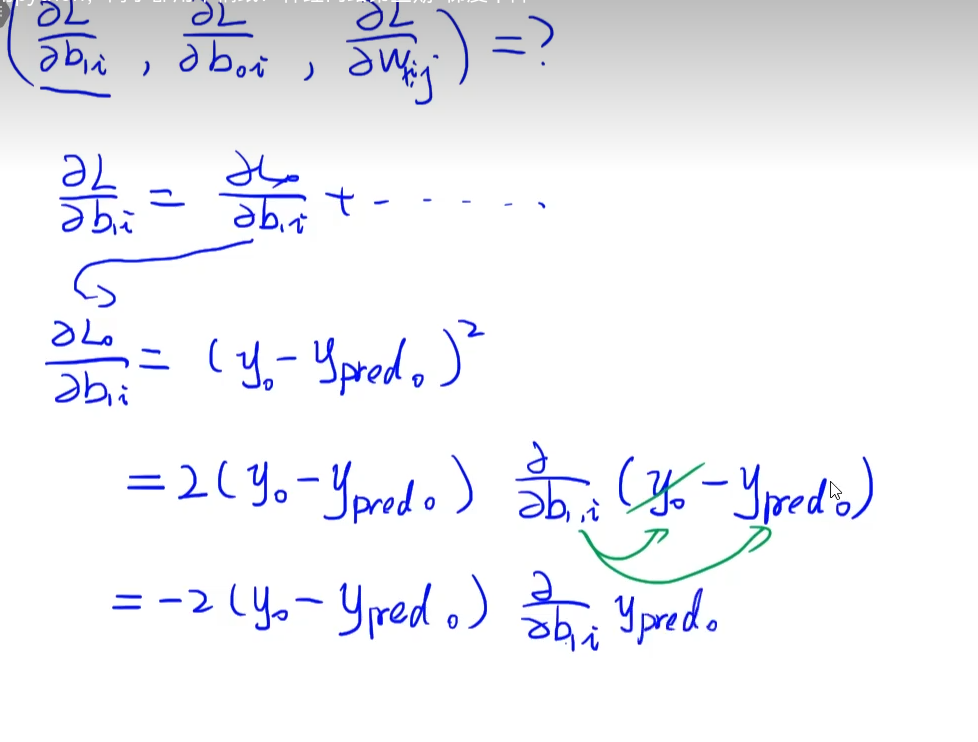 (∂L/∂b₁ᵢ , ∂L/∂b₀ᵢ , ∂L/∂Wₜᵢⱼ) = ?
∂L/∂b₁ᵢ = ∂L₀/∂b₁ᵢ + - - - - - .
∂L₀/∂b₁ᵢ = (y₀ - y_pred₀)²
= 2(y₀ - y_pred₀) ∂/∂b₁,ᵢ (y₀ - y_pred₀)
= -2(y₀ - y_pred₀) ∂/∂b₁ᵢ y_pred₀